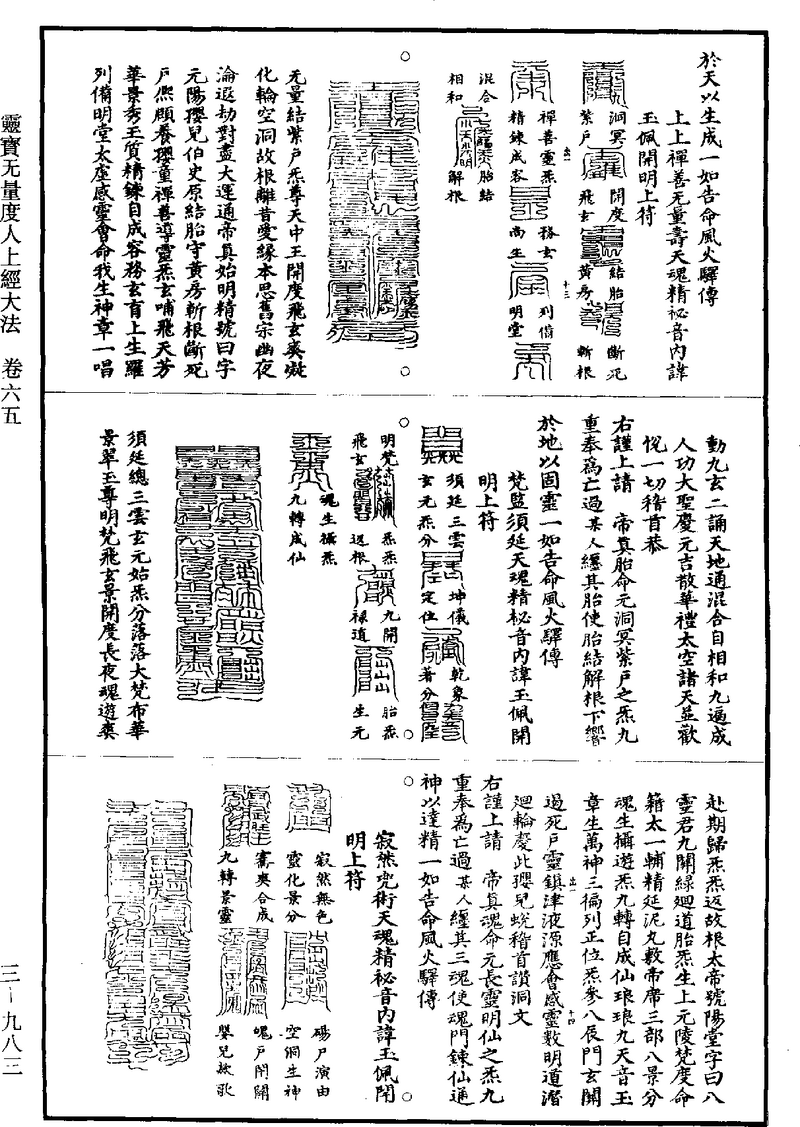 於天以生成一如告命風火驛傳
上上禪善无量壽天魂精祕音內諱
玉佩開明上符
洞冥紫戶
開度飛玄
結胎黃房
斷死斬根
禪善靈炁精鍊成容
務玄尚生
列備明堂
混合相和
胎結解根
无量結紫戶炁尊天中王開度飛玄爽凝
化輪空洞故根離昔愛緣本思舊宗幽夜
淪遐劫對盡大運通帝真始明精號曰字
元陽瓔兒伯史原結胎守黃房斬根斷死
戶熙頤養瓔童禪善導靈炁玄哺飛天芳
華景秀玉質精鍊自成容務玄育上生羅
列備明堂太虛感靈會命我生神章一唱
動九玄二誦天地通混合自相和九遍成
人功大聖慶元吉散華禮太空諸天並歡
悅一切稽首恭
右謹上請　帝真胎命元洞冥紫戶之炁九
重奉為亡過某人纏其胎使胎結解根下響
於地以固靈一如告命風火驛傳
梵監須延天魂精祕音內諱玉佩開
明上符
須延三雲玄元炁分
坤儀定位
乾象著分
明梵飛玄
炁炁返根
九開祿道
胎炁生元
魂生攝炁九轉成仙
須延總三雲玄元始炁分落落大梵布華
景翠玉尊明梵飛玄景開度長夜魂遊爽
赴期歸炁炁返故根太帝號陽堂字曰八
靈君九開綠迴道胎炁生上元陵梵度命
籍太一輔精延泥丸敷帝席三部八景分
魂生攝遊炁九轉自成仙琅琅九天音玉
章生萬神三徧列正位炁參八辰門玄關
過死戶靈鎮津液源應會感靈數明道潛
迴輪慶此瓔兒蛻稽首讚洞文
右謹上請　帝真魂命元長靈明仙之炁九
重奉為亡過某人纏其三魂使魂門鍊仙通
神以達精一如告命風火驛傳
寂然兜術天魂精祕音內諱玉佩開
明上符
寂然無色靈化景分
碭尸演由空侗生神
審爽合成九轉景靈
魄戶閉關嬰兒歌
靈寶无量度人上經大法　卷六五
三—九八三